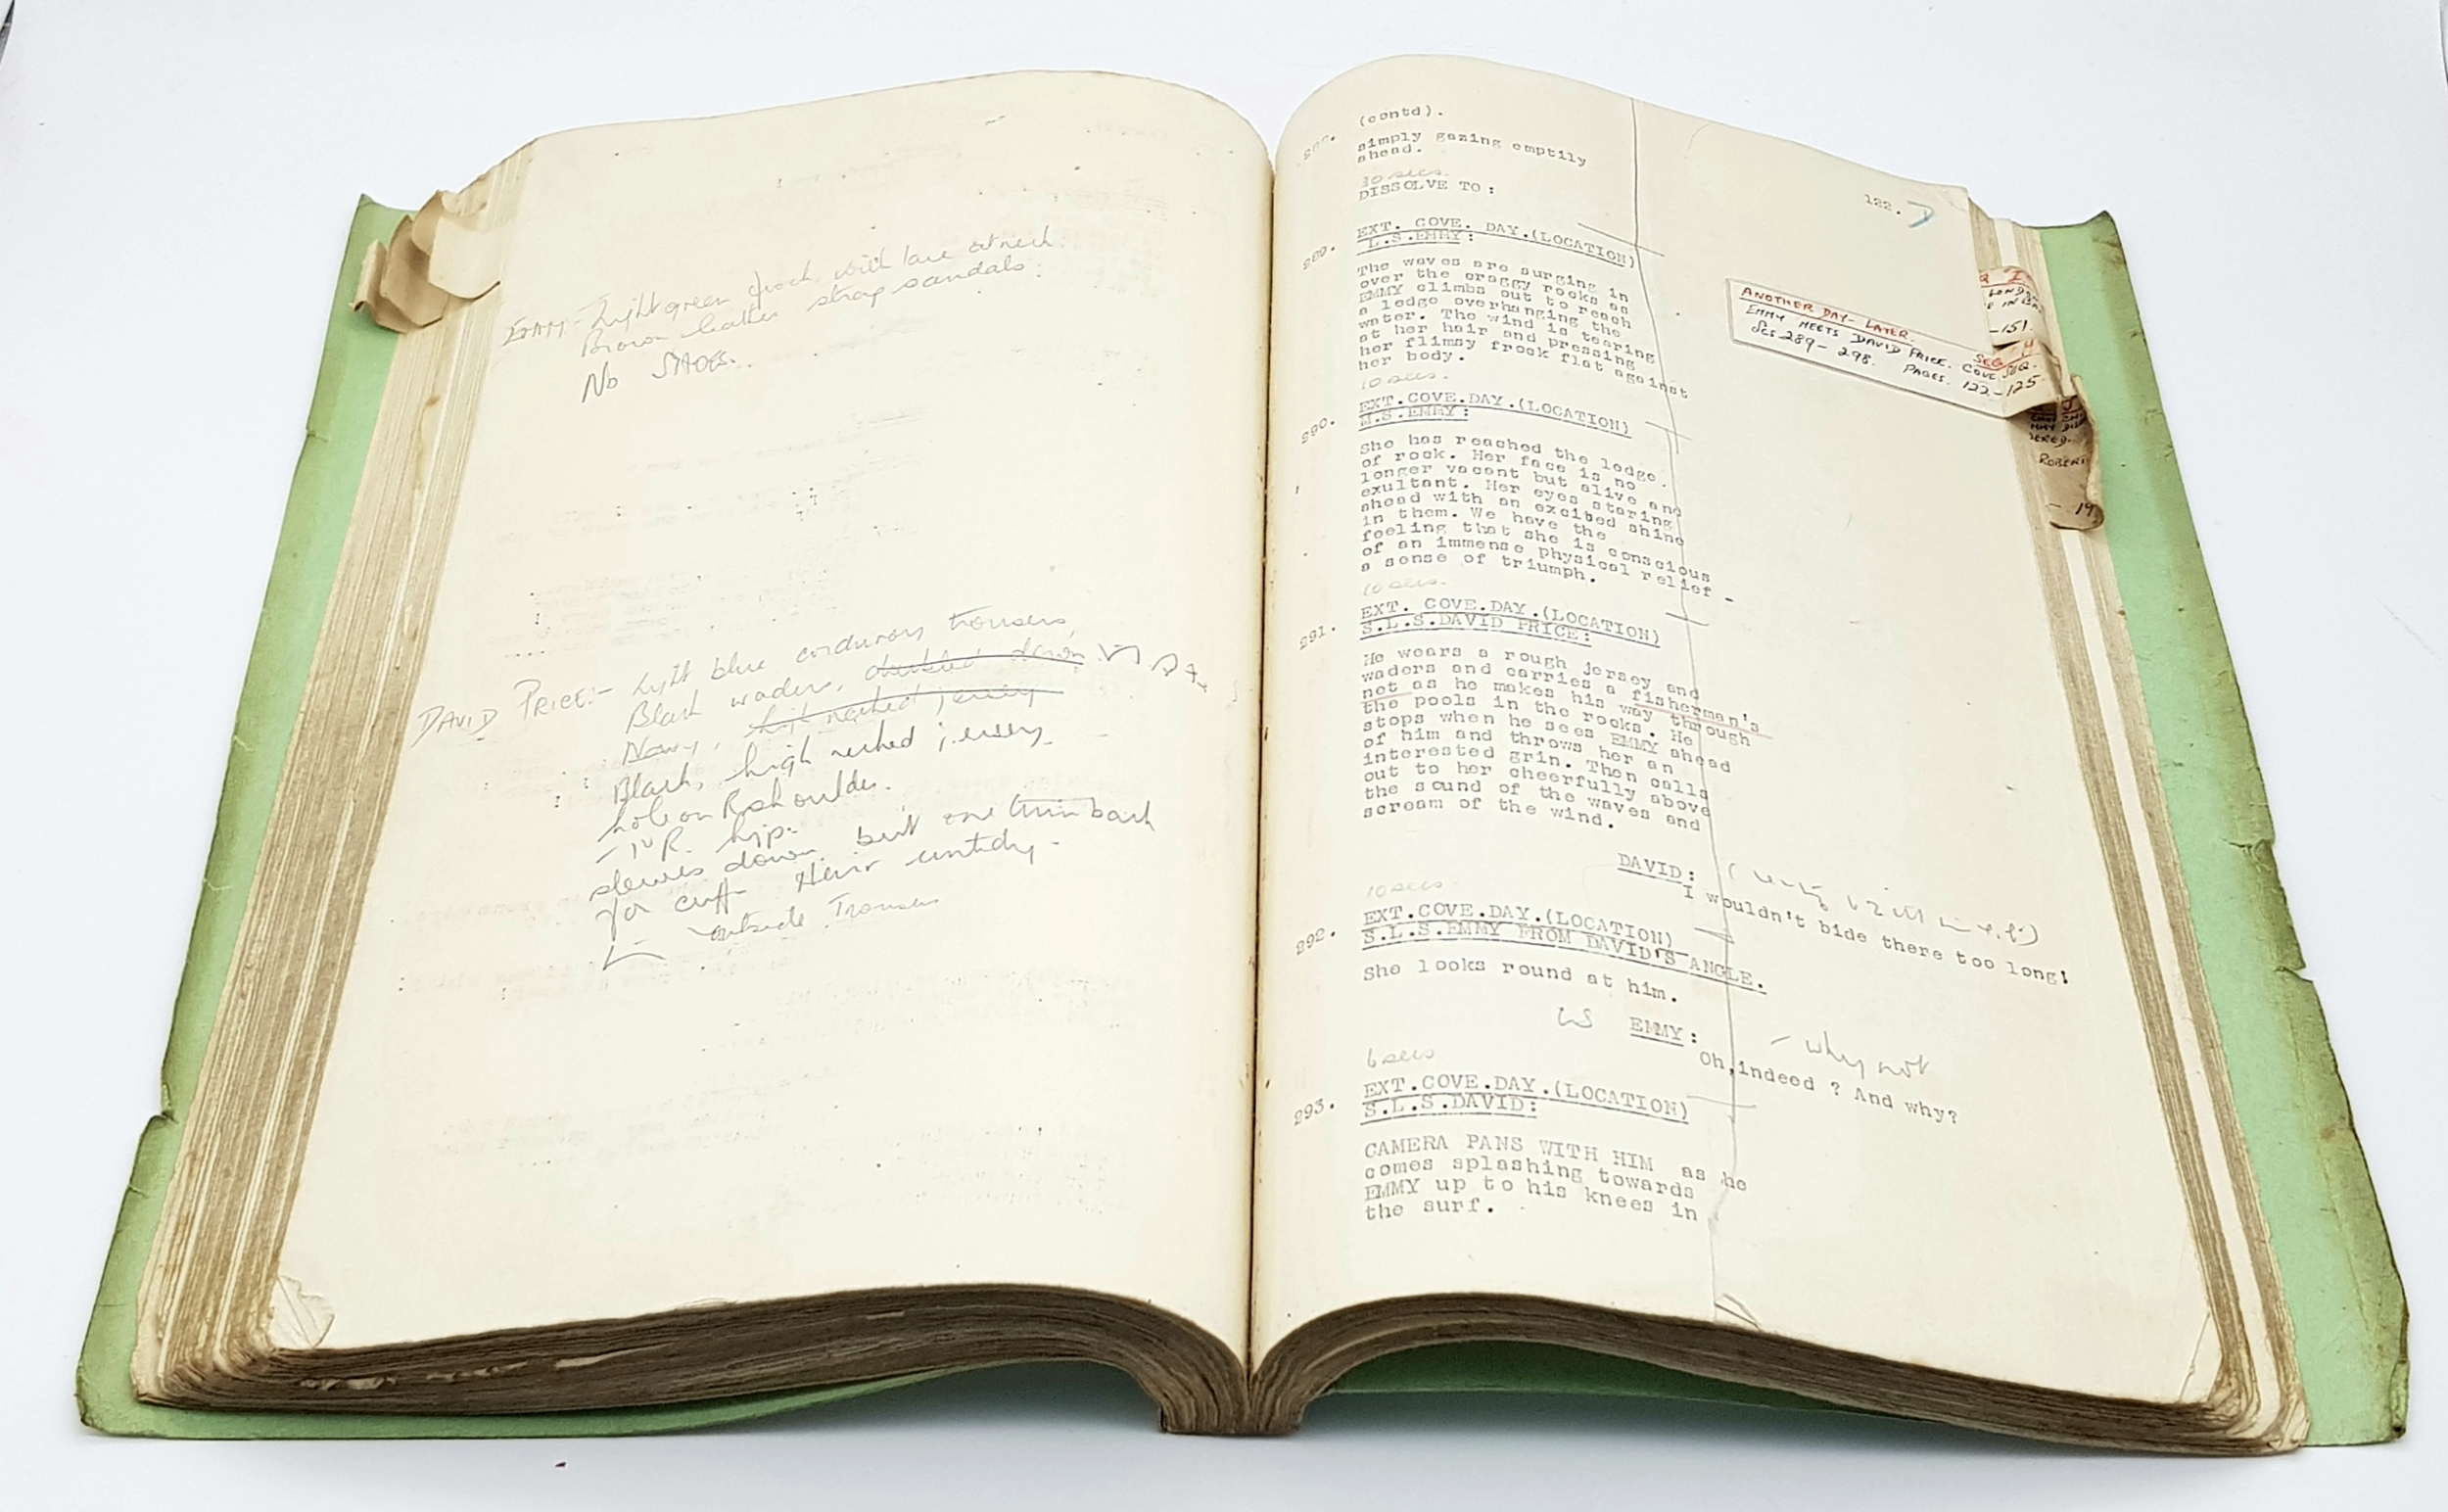 EMMY - Light green frock, with lace at neck.
Brown leather strap sandals:
No SHOES.
DAVID PRICE:- Light blue corduroy trousers,
Black waders,
Navy, high necked jersey
Black, high necked jersey
hole on R shoulder.
R. hip.
sleeves down but one turn back
for cuff Hair untidy -
outside Trousers
(contd).
simply gazing emptily
ahead.
30 secs.
DISSOLVE TO:
122.
289. EXT. COVE. DAY.(LOCATION)
L.S.EMMY:
The waves are surging in
over the craggy rocks as
EMMY climbs out to reach
a ledge overhanging the
water. The wind is tearing
at her hair and pressing
her flimsy frock flat against
her body.
10 secs.
290. EXT.COVE.DAY.(LOCATION)
M.S.EMMY:
She has reached the ledge
of rock. Her face is no
longer vacant but alive and
exultant. Her eyes staring
ahead with an excited shine
in them. We have the
feeling that she is conscious
of an immense physical relief -
a sense of triumph.
10 secs.
291. EXT. COVE.DAY.(LOCATION)
S.L.S.DAVID PRICE:
He wears a rough jersey and
waders and carries a fisherman's
net as he makes his way through
the pools in the rocks. He
stops when he sees EMMY ahead
of him and throws her an
interested grin. Then calls
out to her cheerfully above
the sound of the waves and
scream of the wind.
DAVID:
I wouldn't bide there too long!
10 secs
292. EXT.COVE.DAY.(LOCATION)
S.L.S.EMMY FROM DAVID'S ANGLE.
She looks round at him.
EMMY: - why not
Oh,indeed ? And why?
6 secs
293. EXT.COVE.DAY.(LOCATION)
S.L.S.DAVID:
CAMERA PANS WITH HIM as he
comes splashing towards
EMMY up to his knees in
the surf.
ANOTHER DAY - LATER. SEQ H
EMMY MEETS DAVID PRICE. COVE SEQ.
Scs 289 - 298. PAGES. 122-125
-151.
ROBERT